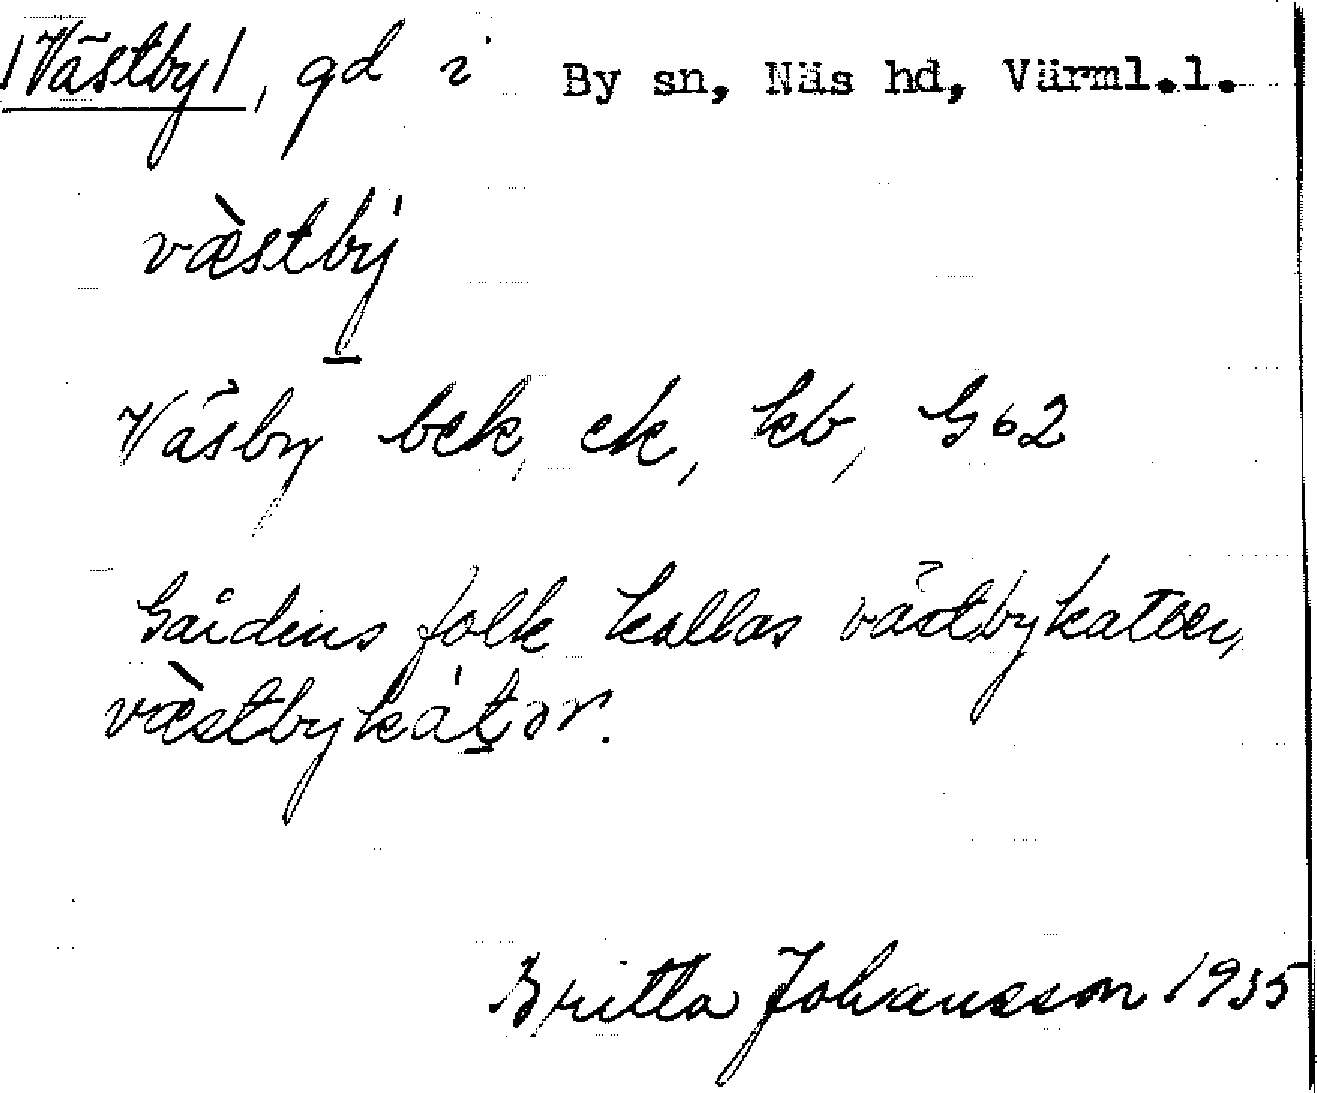 /Västby/, gd i By sn, Näs hd, Värml.l.
væ̀stbý
Väsby bek, ek, kb, G62
Gårdens folk kallas västbykatter,
væ̀stbykátər.
Britta Johansson 1935